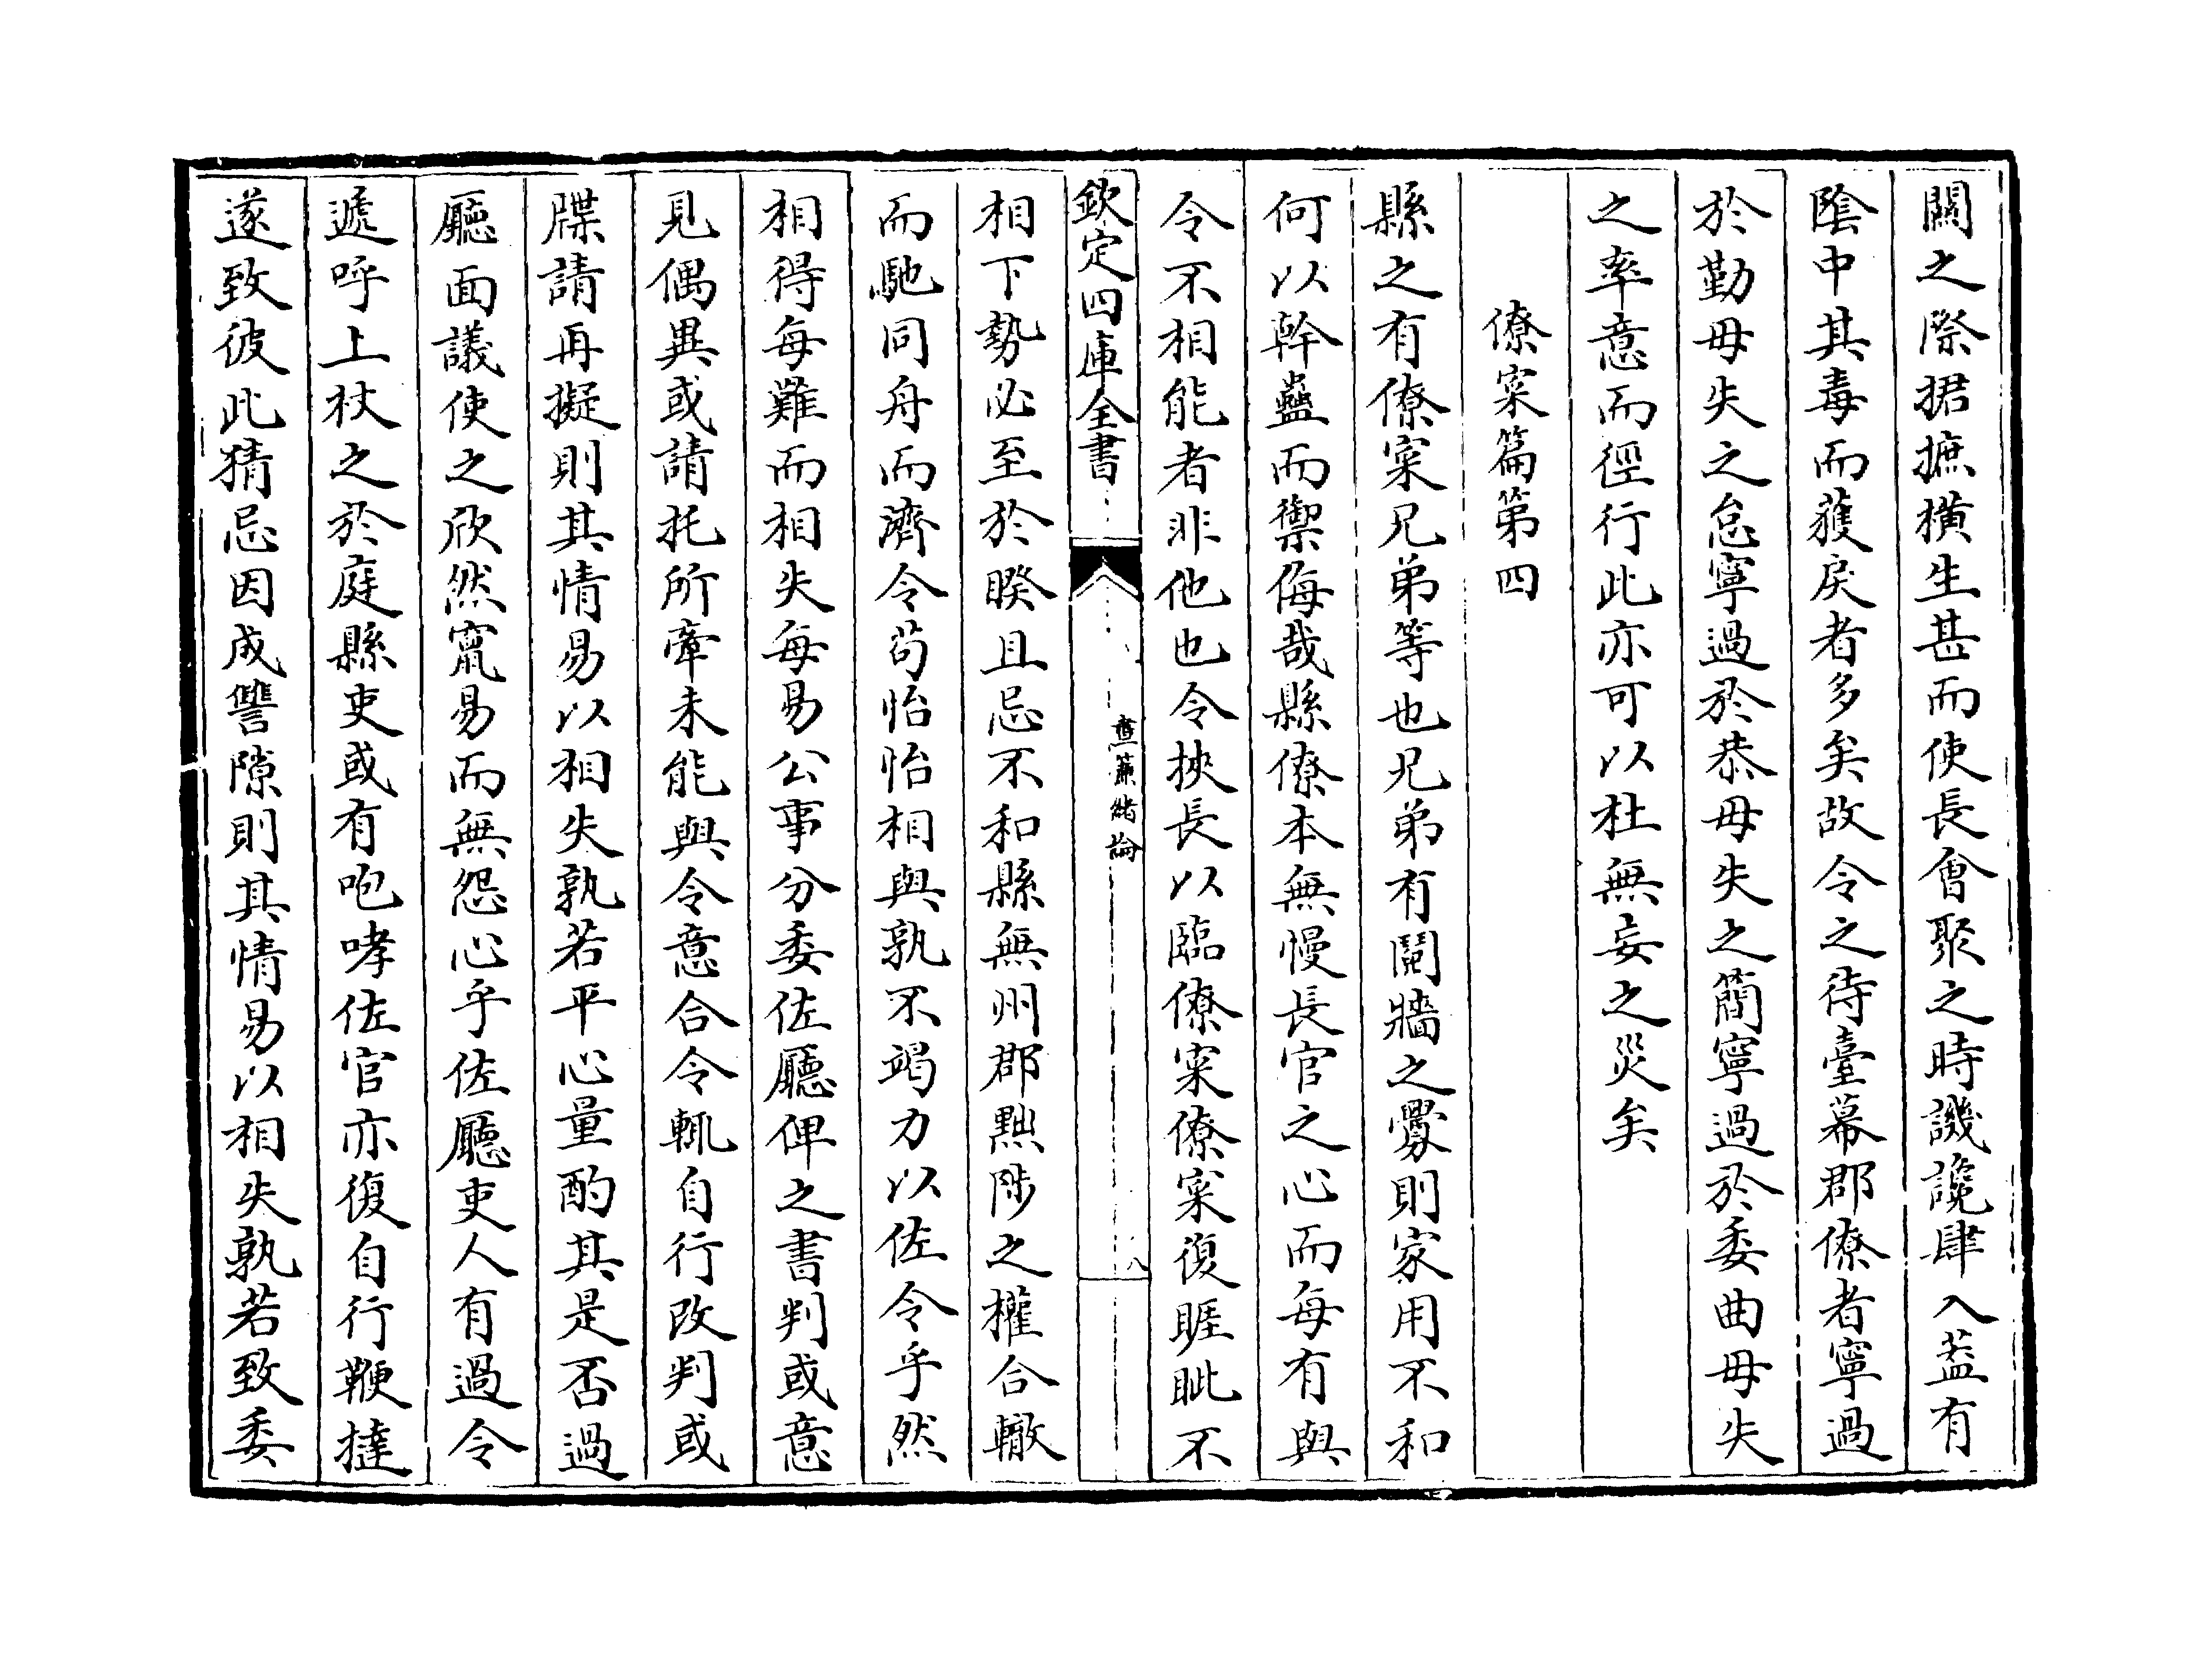 闕之際捃摭横生甚而使長會聚之時譏讒肆入葢有
隂中其毒而獲戾者多矣故令之待臺幕郡僚者寧過
於勤毋失之怠寧過於恭毋失之簡寧過於委曲毋失
之率意而徑行此亦可以杜無妄之災矣
僚寀篇第四
縣之有僚寀兄弟等也兄弟有鬩牆之釁則家用不和
何以幹蠱而禦侮哉縣僚本無慢長官之心而每有與
令不相能者非他也令挾長以臨僚寀僚寀復睚眦不
欽定四庫全書
晝簾緒論
八
相下勢必至於睽且忌不和縣無州郡黜陟之權合轍
而馳同舟而濟令苟怡怡相與孰不竭力以佐令乎然
相得每難而相失每易公事分委佐廳俾之書判或意
見偶異或請托所牽未能與令意合令輒自行改判或
牒請再擬則其情易以相失孰若平心量酌其是否過
廳面議使之欣然竄易而無怨心乎佐廳吏人有過令
遞呼上杖之於庭縣吏或有咆哮佐官亦復自行鞭撻
遂致彼此猜忌因成讐隙則其情易以相失孰若致委